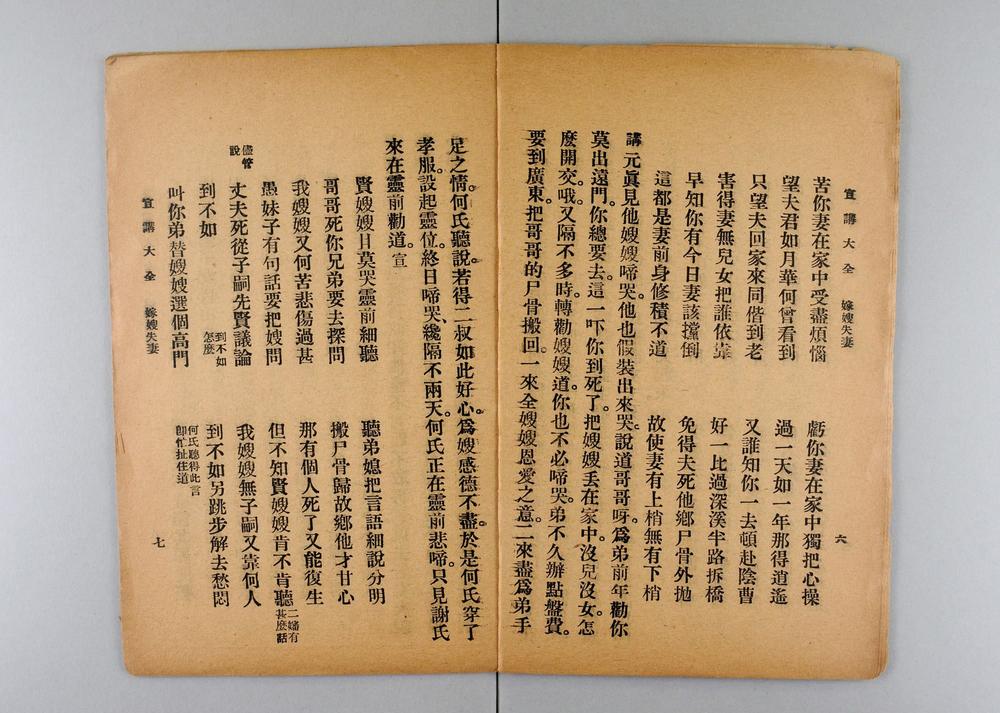 宣講大全 嫁嫂失妻 六
苦你妻在家中受盡煩惱 虧你妻在家中獨把心操
望夫君如月華何曾看到 過一天如一年那得逍遙
只望夫回家來同偕到老 又誰知你一去頓赴陰曹
害得妻無兒女把誰依靠 好一比過深溪半路拆橋
早知你有今日妻該攩倒 免得夫死他鄉尸骨外拋
這都是妻前身修積不道 故使妻有上梢無有下梢
講元眞見他嫂嫂啼哭。他也假裝出來哭。說道哥哥呀。爲弟前年勸你
莫出遠門。你總要去。這一吓你到死了。把嫂嫂丢在家中。沒兒沒女。怎
麽開交。哦。又隔不多時。轉勸嫂嫂道。你也不必啼哭。弟不久辦點盤費。
要到廣東。把哥哥的尸骨搬回。一來全嫂嫂恩愛之意。二來盡爲弟手
足之情。何氏聽說。若得二叔如此好心。爲嫂感德不盡。於是何氏穿了
孝服。設起靈位。終日啼哭、纔隔不兩天。何氏正在靈前悲啼。只見謝氏
來在靈前勸道。宣
賢嫂嫂且莫哭靈前細聽 聽弟媳把言語細說分明
哥哥死你兄弟要去探問 搬尸骨歸故鄉他才甘心
我嫂嫂又何苦悲傷過甚 那有個人死了又能復生
愚妹子有句話要把嫂問 但不知賢嫂嫂肯不肯聽 二嬸有甚麽話
儘管說 丈夫死從子嗣先賢議論 我嫂嫂無子嗣又靠何人
到不如 到不如怎麽 到不如另跳步解去愁悶
叫你弟替嫂嫂選個高門 何氏聽得此言卽忙扯住道
宣講大全 嫁嫂失妻 七